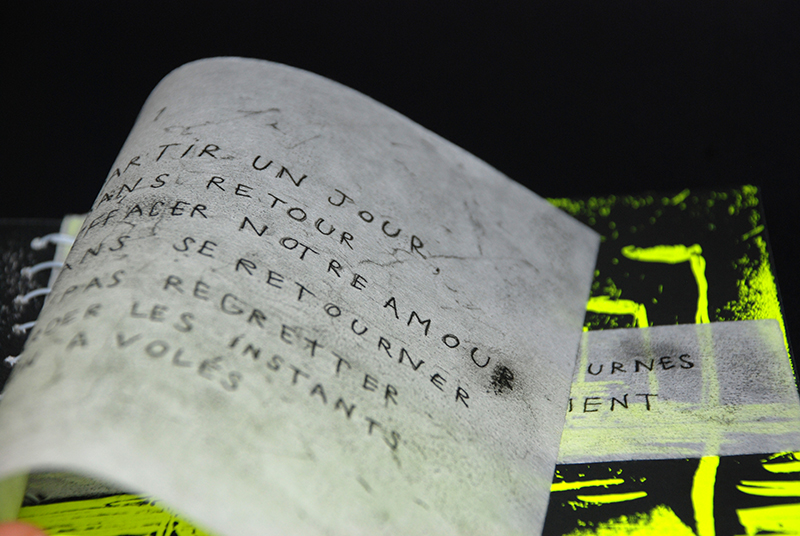 ARTIR UN JOUR,
ANS RETOUR
EFFACER NOTRE AMOUR
ANS SE RETOURNER
PAS REGRETTER
DER LES INSTANTS
A VOLÉS
URNES
IENT